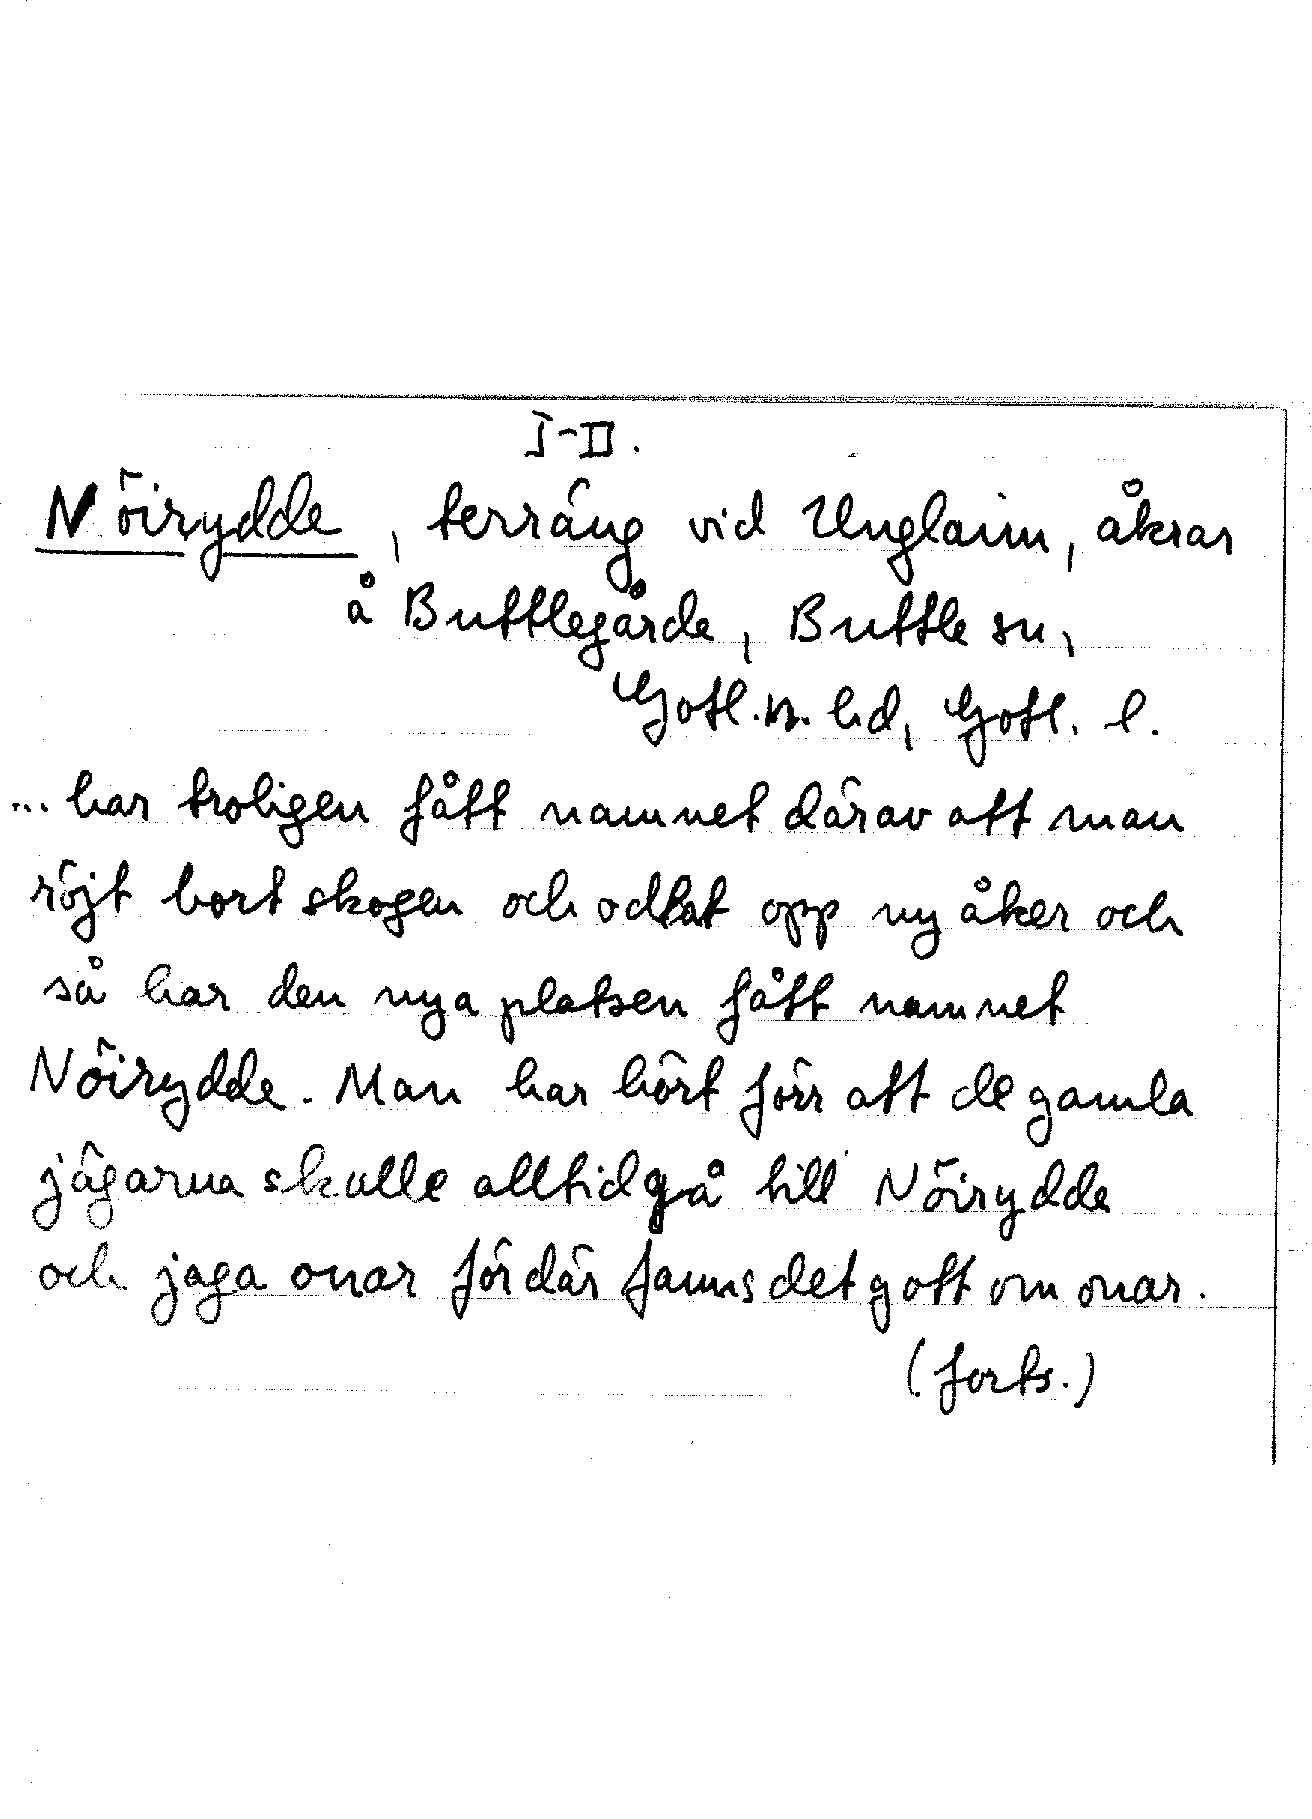 I-II.
Nöirydde, terräng vid Unglaim, åkrar
å Buttlegårde, Buttle sn,
Gotl. n. hd, Gotl. l.
... har troligen fått namnet därav att man
röjt bort skogen och odlat opp ny åker och
så har den nya platsen fått namnet
Nöirydde. Man har hört förr att de gamla
jägarna skulle alltid gå till Nöirydde
och jaga orrar för där fanns det gott om orrar.
(forts.)